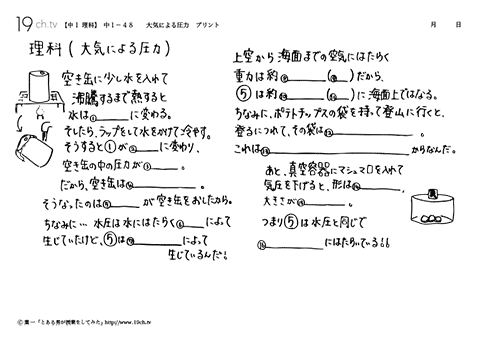 19ch.tv 【中1理科】 中1-48 大気による圧力 プリント 月 日
理科 (大気による圧力)
空き缶に少し水を入れて
沸騰するまで熱すると
水は①______に変わる。
そしたら、ラップをして水をかけて冷やす。
そうすると①が②____に変わり、
空き缶の中の圧力が③____。
だから、空き缶は④________。
そうなったのは⑤______が空き缶をおしたから。
ちなみに… 水圧は水にはたらく⑥____によって
生じていたけど、⑤は⑦________によって
生じているんだ!
上空から海面までの空気にはたらく
重力は約⑧______(⑨____)だから、
⑤は約⑩______(⑪____)に海面上ではなる。
ちなみに、ポテトチップスの袋を持って登山に行くと、
登るにつれて、その袋は⑫____________。
これは⑬____________________からなんだ。
あと、真空容器にマシュマロを入れて
気圧を下げると、形は⑭______、
大きさが⑮______。
つまり⑤は水圧と同じで
⑯________にはたらいている!!
©葉一「とある男が授業をしてみた」http://www.19ch.tv